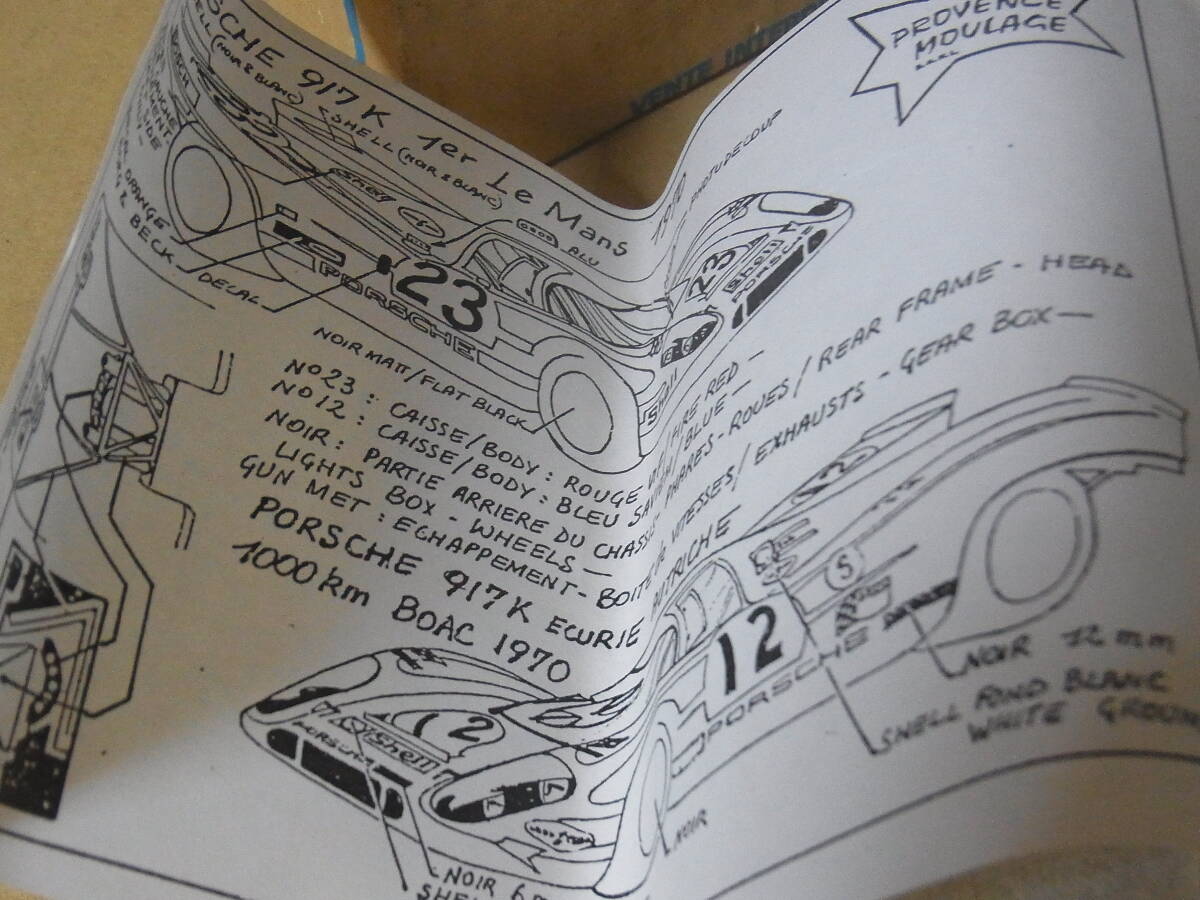 PROVENCE
MOULAGE
SARL
VENTE
SCHE 917K 1er Le Mans 1970
(NOIR & BLANC) SHELL (NOIR & BLANC)
PHOTODECOUP
ORANGE
& BECK
DECAL
ALU
Shell
23
PORSCHE
23
Shell
PORSCHE
Shell
NOIR MATT/FLAT BLACK
No23: CAISSE/BODY: ROUGE /FIRE RED -
No12: CAISSE/BODY: BLEU /BLUE -
NOIR: PARTIE ARRIERE DU CHASSIS- PHARES-ROUES/REAR FRAME-HEAD
LIGHTS BOX-WHEELS-
GUN MET: ECHAPPEMENT-BOITE de VITESSES/EXHAUSTS-GEAR BOX-
PORSCHE 917K ECURIE AUTRICHE
1000km BOAC 1970
12
PORSCHE
S
12
Shell
PORSCHE
NOIR 12mm
SHELL FOND BLANC
WHITE GROUN
NOIR
NOIR 6
SHEL